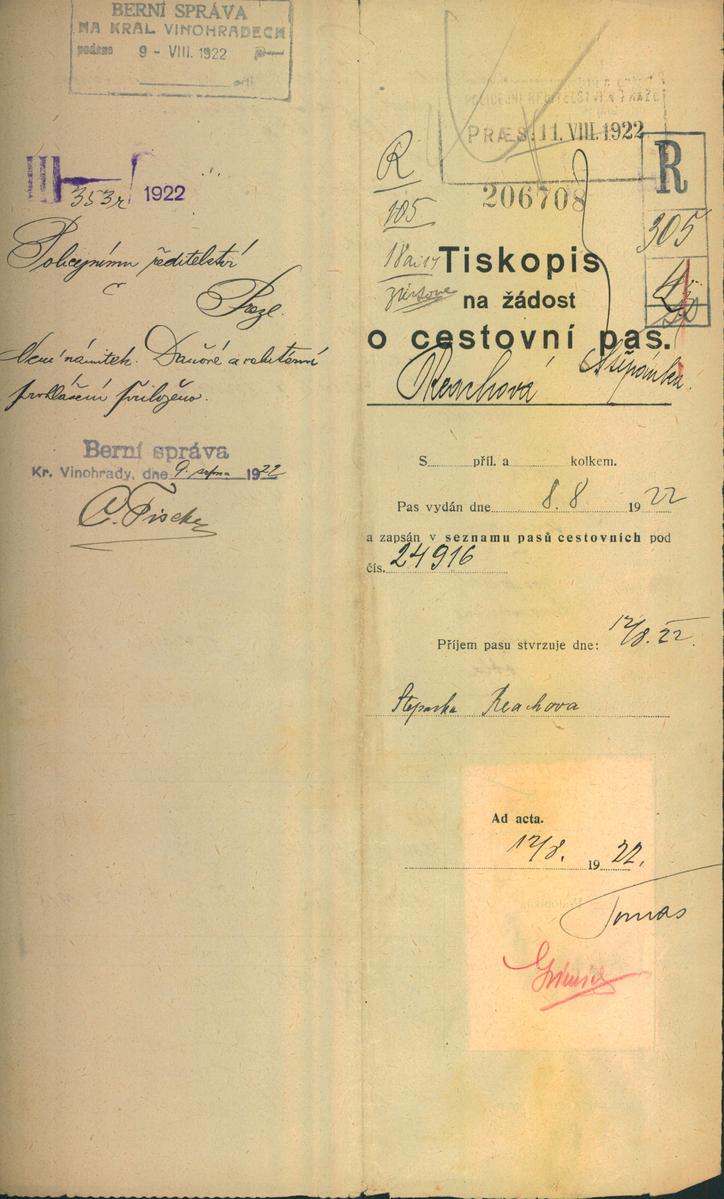 BERNÍ SPRÁVA
NA KRÁL. VINOHRADECH
podáno 9 - VIII. 1922
III 353r 1922
Policejnímu ředitelství
v
Praze.
Není námitek. Daňové a
prohlášení přiloženo.
Berní správa
Kr. Vinohrady, dne 9. srpna 1922
PRÆS. 11. VIII. 1922
206708
R
105
R
305
Tiskopis
na žádost
o cestovní pas.
Reachová Štěpánka.
S příl. a kolkem.
Pas vydán dne 8. 8 1922
a zapsán v seznamu pasů cestovních pod
čís. 24916
Příjem pasu stvrzuje dne: 12/8. 22.
Stepanka Reachova
Ad acta.
12/8. 1922.
Tomas